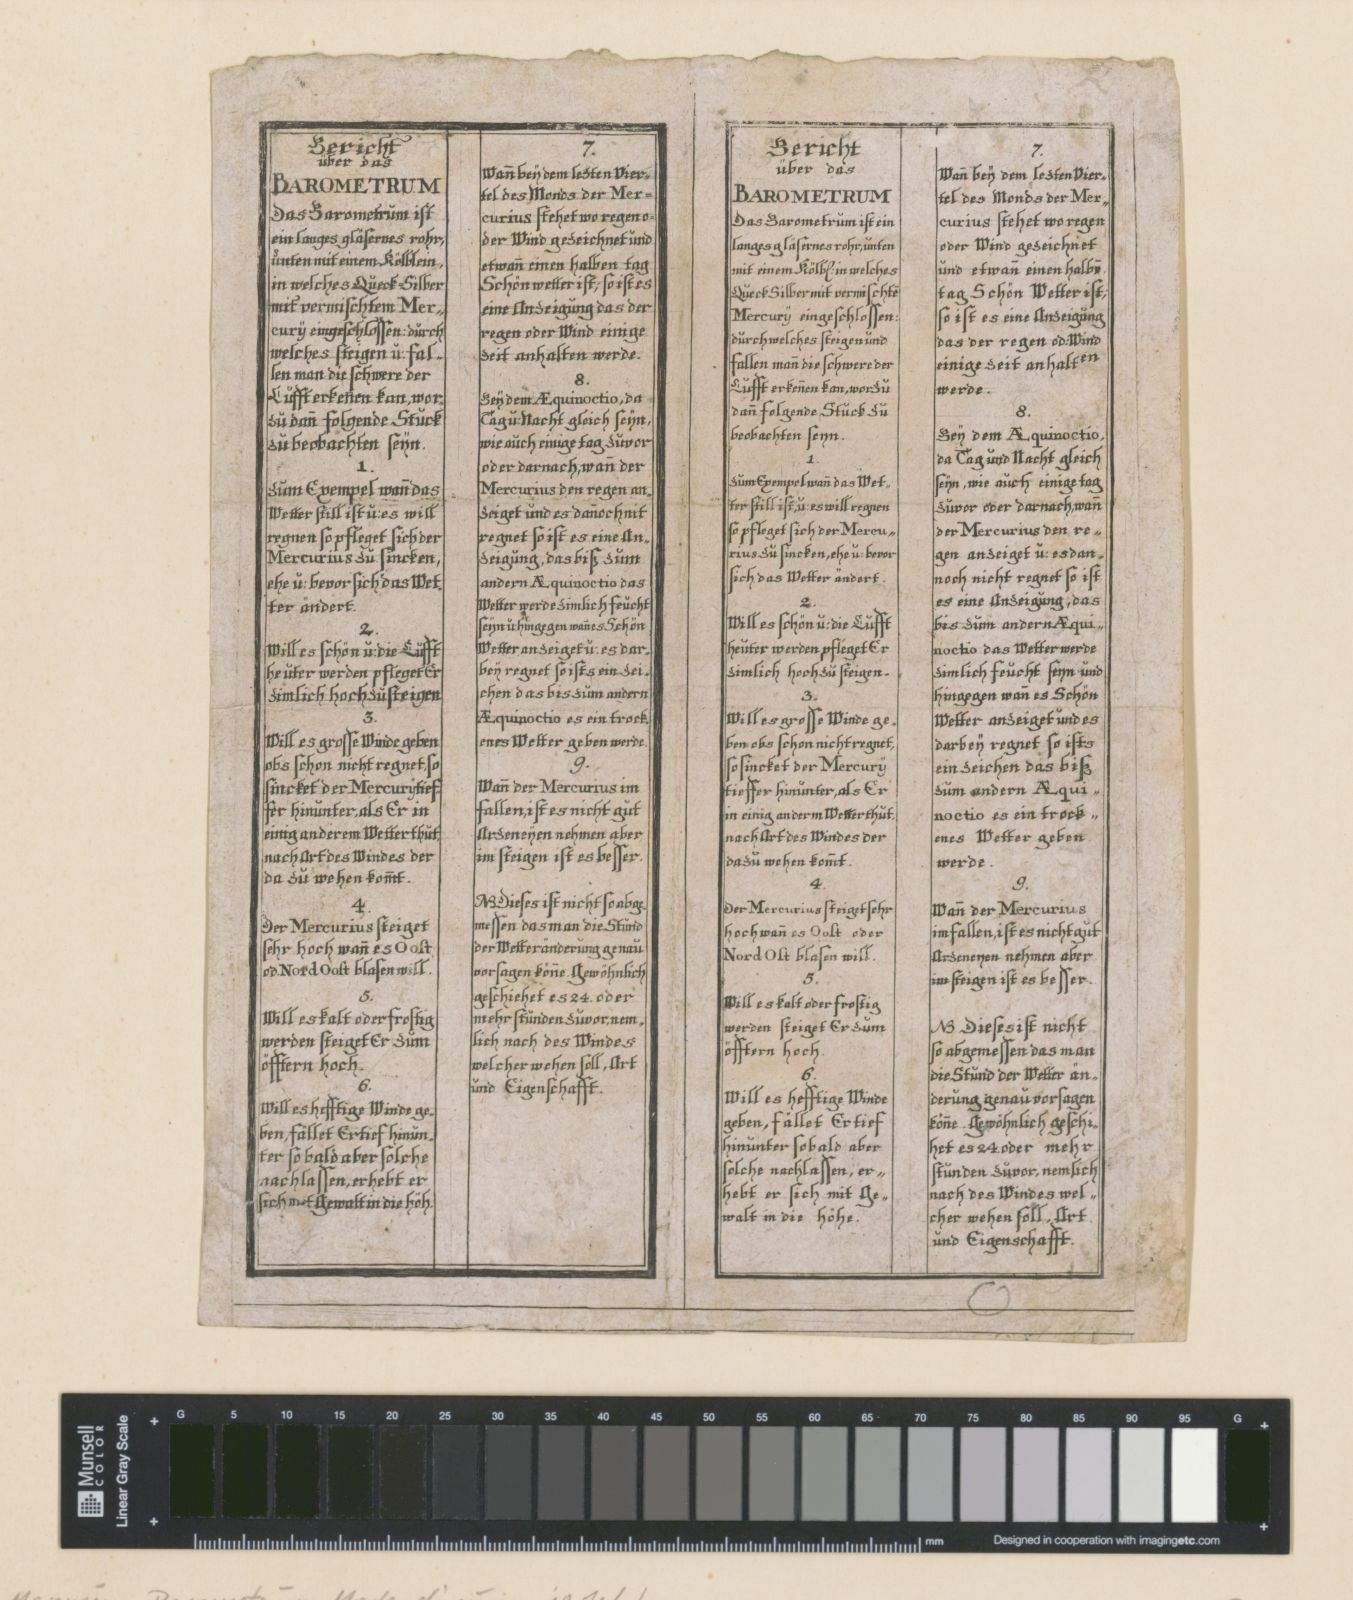 Bericht
über das
BAROMETRUM
Das Barometrum ist
ein langes gläsernes rohr,
unten mit einem Kölblein,
in welches Queck=Silber
mit vermischtem Mer„
curÿ eingeschlossen: durch
welches steigen ŭ: fal„
len man die schwere der
Lŭfft erkeñen kan, wor„
zŭ dañ folgende Stŭck
zŭ beobachten seÿn.
1.
Zŭm Exempel wañ das
Wetter still ist ŭ: es will
regnen so pfleget sich der
Mercurius zŭ sincken,
ehe ŭ: bevor sich das Wet„
ter ändert.
2.
Will es schön ŭ: die Lŭfft
heŭter werden pfleget Er
zimlich hoch zŭ steigen
3.
Will es grosse Winde geben
obs schon nicht regnet, so
sincket der Mercurÿ tief„
fer hinŭnter, als Er in
einig anderem Wetter thŭt,
nach Art des Windes der
da zŭ wehen kom̃t.
4.
Der Mercurius steiget
sehr hoch wañ es Oost
od. Nord Oost blasen will.
5.
Will es kalt oder frostig
werden steiget Er zŭm
öfftern hoch.
6.
Will es hefftige Winde ge„
ben, fället Er tief hinŭn„
ter so bald aber solche
nachlassen, erhebt er
sich mit Gewalt in die höh.
7.
Wañ beÿ dem lezten Vier„
tel des Monds der Mer=
curius stehet wo regen o=
der Wind gezeichnet und
etwañ einen halben tag
Schön wetter ist; so ist es
eine Anzeigŭng das der
regen oder Wind einige
Zeit anhalten werde.
8.
Beÿ dem Æquinoctio, da
Tag ŭ: Nacht gleich seÿn,
wie aŭch einige tag zŭvor
oder darnach, wañ der
Mercurius den regen an„
zeiget und es dañoch nit
regnet so ist es eine An„
zeigŭng, das biß zŭm
andern Æquinoctio das
Wetter werde zimlich feŭcht
seÿn ŭ: hingegen wañ es Schön
Wetter anzeiget ŭ: es dar„
beÿ regnet so ists ein zei„
chen das bis zŭm andern
Æquinoctio es ein trock„
enes Wetter geben werde.
9.
Wañ der Mercurius im
fallen, ist es nicht gŭt
Arzeneÿen nehmen aber
im steigen ist es besser.
NB Dieses ist nicht so abge„
messen das man die Stŭnd
der Wetter änderŭng genaŭ
vorsagen köñe. Gewöhnlich
geschiehet es 24. oder
mehr stŭnden zŭvor, nem„
lich nach des Windes
welcher wehen soll, Art
und Eigenschafft.
Bericht
über das
BAROMETRUM
Das Barometrŭm ist ein
langes gläsernes rohr, ŭnten
mit einem Kölbl: in welches
Queck Silber mit vermischtẽ
Mercurÿ eingeschlossen:
dŭrch welches steigen und
fallen mañ die schwere der
Lŭfft erkeñen kan, wor zŭ
dañ folgende Stŭck zŭ
beobachten seyn.
1.
Zŭm Exempel wañ das Wet„
ter still ist, ŭ: es will regnen
so pfleget sich der Mercu„
rius zŭ sincken, ehe ŭ: bevor
sich das Wetter ändert.
2.
Will es schön ŭ: die Lŭfft
heŭter werden pfleget Er
zimlich hoch zŭ steigen.
3.
Will es grosse Winde ge„
ben obs schon nicht regnet,
so sincket der Mercurÿ
tieffer hinŭnter, als Er
in einig anderm Wetter thŭt,
nach Art des Windes der
da zŭ wehen kom̃t.
4.
Der Mercurius steiget sehr
hoch wañ es Oost oder
Nord Ost blasen will.
5.
Will es kalt oder frostig
werden steiget Er zŭm
öfftern hoch.
6.
Will es hefftige Winde
geben, fället Er tief
hinŭnter sobald aber
solche nachlassen, er„
hebt er sich mit Ge„
walt in die höhe.
7.
Wañ beÿ dem lezten Vier„
tel des Monds der Mer„
curius stehet wo regen
oder Wind gezeichnet
und etwañ einen halbẽ
tag Schön Wetter ist;
so ist es eine Anzeigŭng
das der regen od: Wind
einige Zeit anhalten
werde.
8.
Beÿ dem Æquinoctio,
da Tag und Nacht gleich
seÿn, wie aŭch einige tag
zŭvor oder darnach, wañ
der Mercurius den re„
gen anzeiget ŭ: es dan„
noch nicht regnet so ist
es eine Anzeigŭng, das
bis zŭm andern Æqui„
noctio das Wetter werde
zimlich feŭcht seyn und
hingegen wañ es Schön
Wetter anzeiget und es
darbeÿ regnet so ists
ein zeichen das biß
zŭm andern Æqui„
noctio es ein trock„
enes Wetter geben
werde.
9.
Wañ der Mercurius
im fallen, ist es nicht gŭt
Arzeneyen nehmen aber
im steigen ist es besser.
NB Dieses ist nicht
so abgemessen das man
die Stŭnd der Wetter än„
derŭng genaŭ vorsagen
köñe. Gewöhnlich geschi„
het es 24. oder mehr
stŭnden zŭvor, nemlich
nach des Windes wel„
cher wehen soll, Art
und Eigenschafft.
Munsell
COLOR
Linear Gray Scale
G 5 10 15 20 25 30 35 40 45 50 55 60 65 70 75 80 85 90 95 G
mm
Designed in cooperation with imagingetc.com